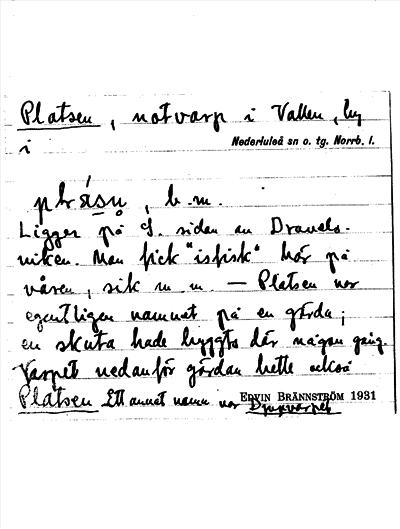 Platsen, notvarp i Vallen, by
i Nederluleå sn o. tg. Norrb. l.
b. m.
Ligger på S. sidan av Dravels-
viken. Man fick "isfisk" här på
våren, sik m. m. — Platsen var
egentligen namnet på en gärda;
en skuta hade byggts där någon gång.
Varpet nedanför gärdan hette också
Platsen Ett annat namn var Djupvarpet
EDVIN BRÄNNSTRÖM 1931